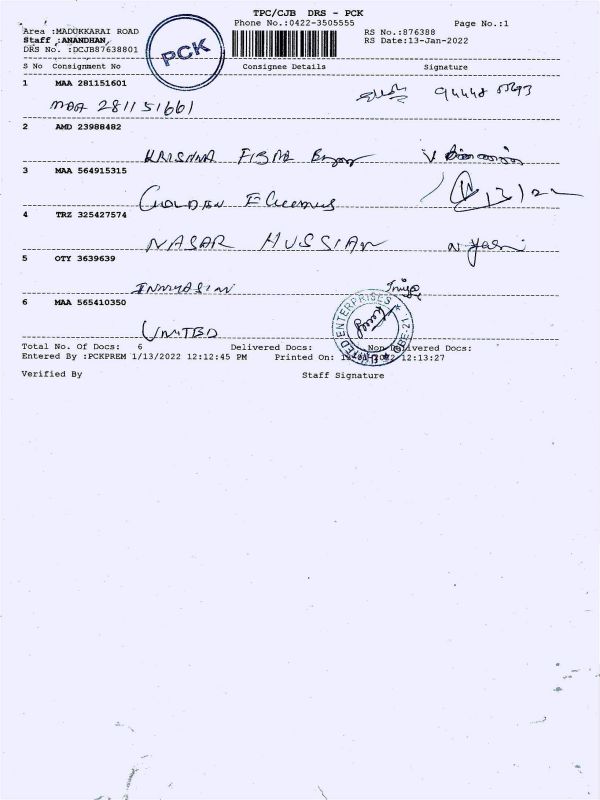 TPC/CJB DRS - PCK
Phone No.:0422-3505555 Page No.:1
Area :MADUKKARAI ROAD RS No.:876388
Staff :ANANDHAN, RS Date:13-Jan-2022
DRS No. :DCJB87638801
PCK
S No Consignment No Consignee Details Signature
1 MAA 281151601
MAA 281151661
2 AMD 23988482
KRISHNA
3 MAA 564915315
GOLDEN
4 TRZ 325427574
NASAR HUSSIAN
5 OTY 3639639
6 MAA 565410350
UNITED
UNITED ENTERPRISES
Total No. Of Docs: 6 Delivered Docs: Non Delivered Docs:
Entered By :PCKPREM 1/13/2022 12:12:45 PM Printed On: 12:13:27
Verified By Staff Signature